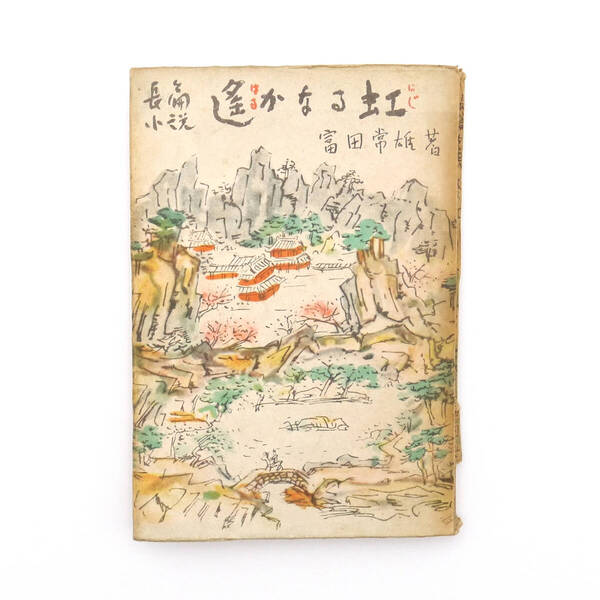 長篇小説
遙かなる虹
はる
にじ
富田常雄 著